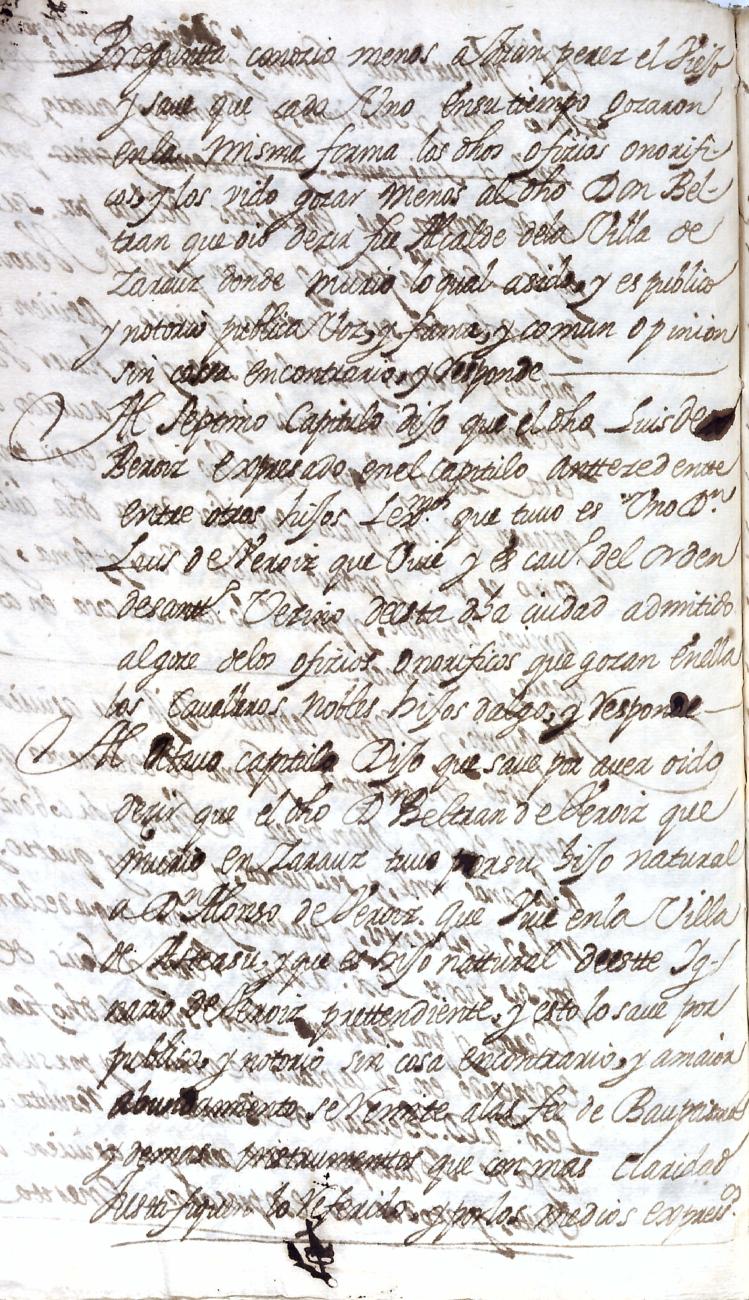 Pregunta conozio menos a Juan perez el Viejo
y save que cada Uno ensu tiempo gozaron
enla misma forma los dhos ofizios onorifi-
cos, y los vido gozar menos al dho Don Bel
tran que oio dezir fue Alcalde dela Villa de
Zarauz donde murio lo qual asido, y es publico
y notorio publica Voz, y fama, y comun opinion
sin cossa encontrario, y responde
Al septimo Capitulo dijo que el dho Luis de
Beroiz expresado en el capitulo anttezedente
entre otros hijos Lexmos que tuvo es Uno Dn
Luis de Veroiz que Vive y es cavo del orden
desantto Vezino deesta dha ciudad admitido
algoze delos ofizios onorificos que gozan enella
los Cavalleros nobles hijos dalgo, y responde
Al octavo capitulo Dijo que save por aver oido
dezir que el dho Dn Beltran de Veroiz que
murio en Zarauz tuvo porsu hijo natural
a Dn Alonso de Veroiz que Vive enla Villa
de, y que es hijo nattural deestte Ig-
nazio de Veroiz prettendiente, y esto lo save por
publico, y notorio sin cosa encontrario, y amaior
abundamiento se Remite alas fees de Baupttismos
y demas instrumentos que con mas claridad
Justafiquen lo referido, y por los medios expresdos